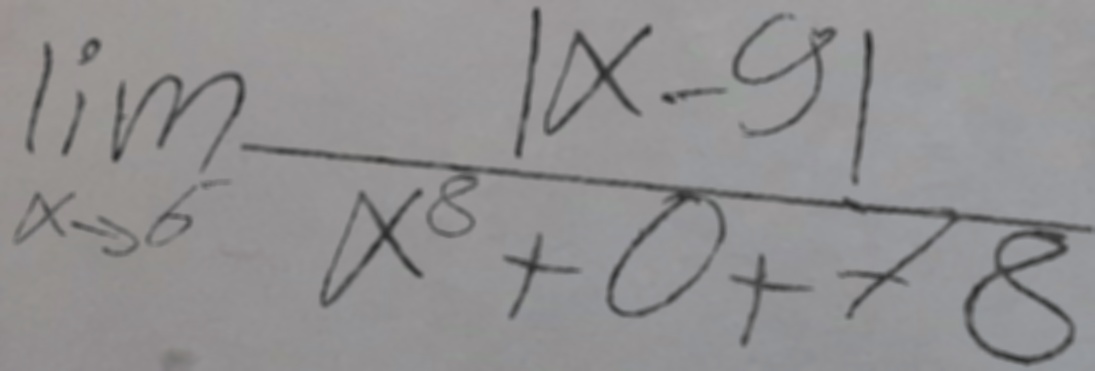 lim |x-9|
x→6⁻ x⁸+0+78